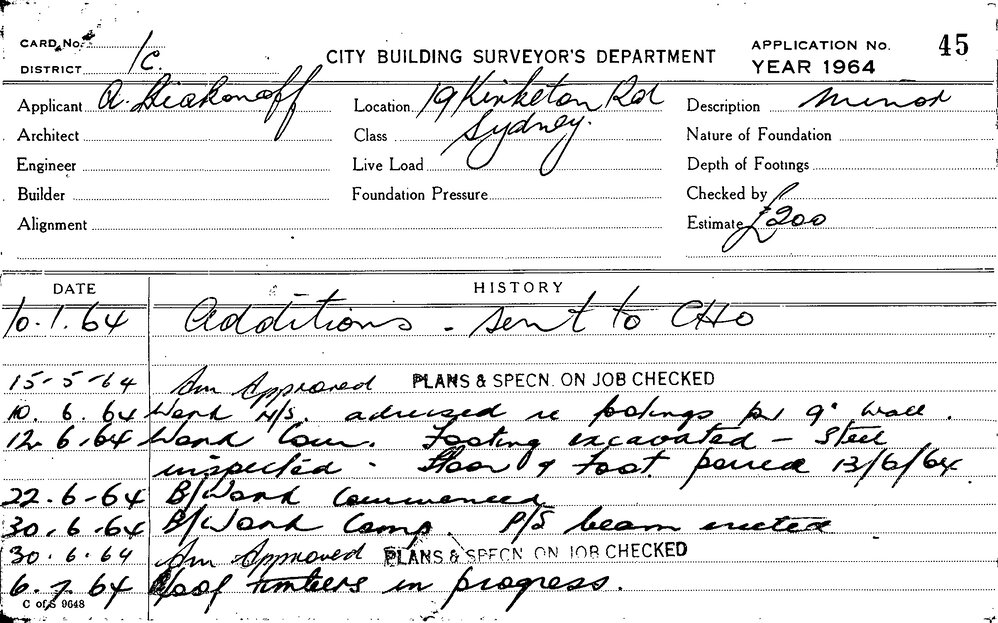 CARD No.
DISTRICT 1c.
CITY BUILDING SURVEYOR'S DEPARTMENT
APPLICATION No. 45
YEAR 1964
Applicant A. Diakonoff
Location 19 Kirketon Rd
Sydney.
Description Minor
Architect
Class
Nature of Foundation
Engineer
Live Load
Depth of Footings
Builder
Foundation Pressure
Checked by
Alignment
Estimate £200
DATE HISTORY
10.1.64 Additions - sent to CHO
15-5-64 Am Approved PLANS & SPECN. ON JOB CHECKED
10.6.64 Work N/S. advised re footings for 9" wall.
12.6.64 Work Com. Footing excavated - Steel
inspected. Floor & Foot. poured 13/6/64
22.6-64 B/Work Commenced
30.6.64 B/Work Comp. P/S beam erected
30.6.64 Am Approved PLANS & SPECN. ON JOB CHECKED
6.7.64 Roof timbers in progress.
C of S 9648